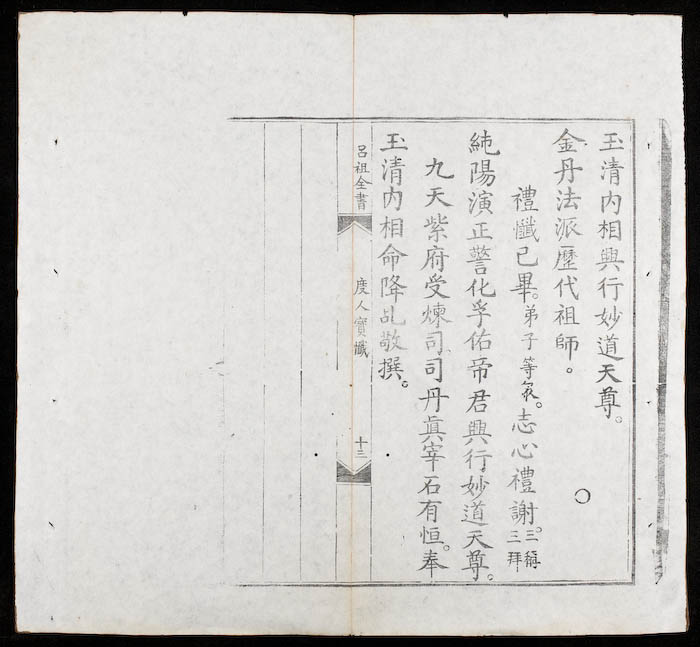 玉清內相興行妙道天尊。
金丹法派歷代祖師。
禮懺已畢。弟子等衆。志心禮謝。三稱三拜
純陽演正警化孚佑帝君興行妙道天尊。
九天紫府受煉司司丹眞宰石有恒。奉
玉清內相命降乩敬撰。
呂祖全書 度人寶懺 十三